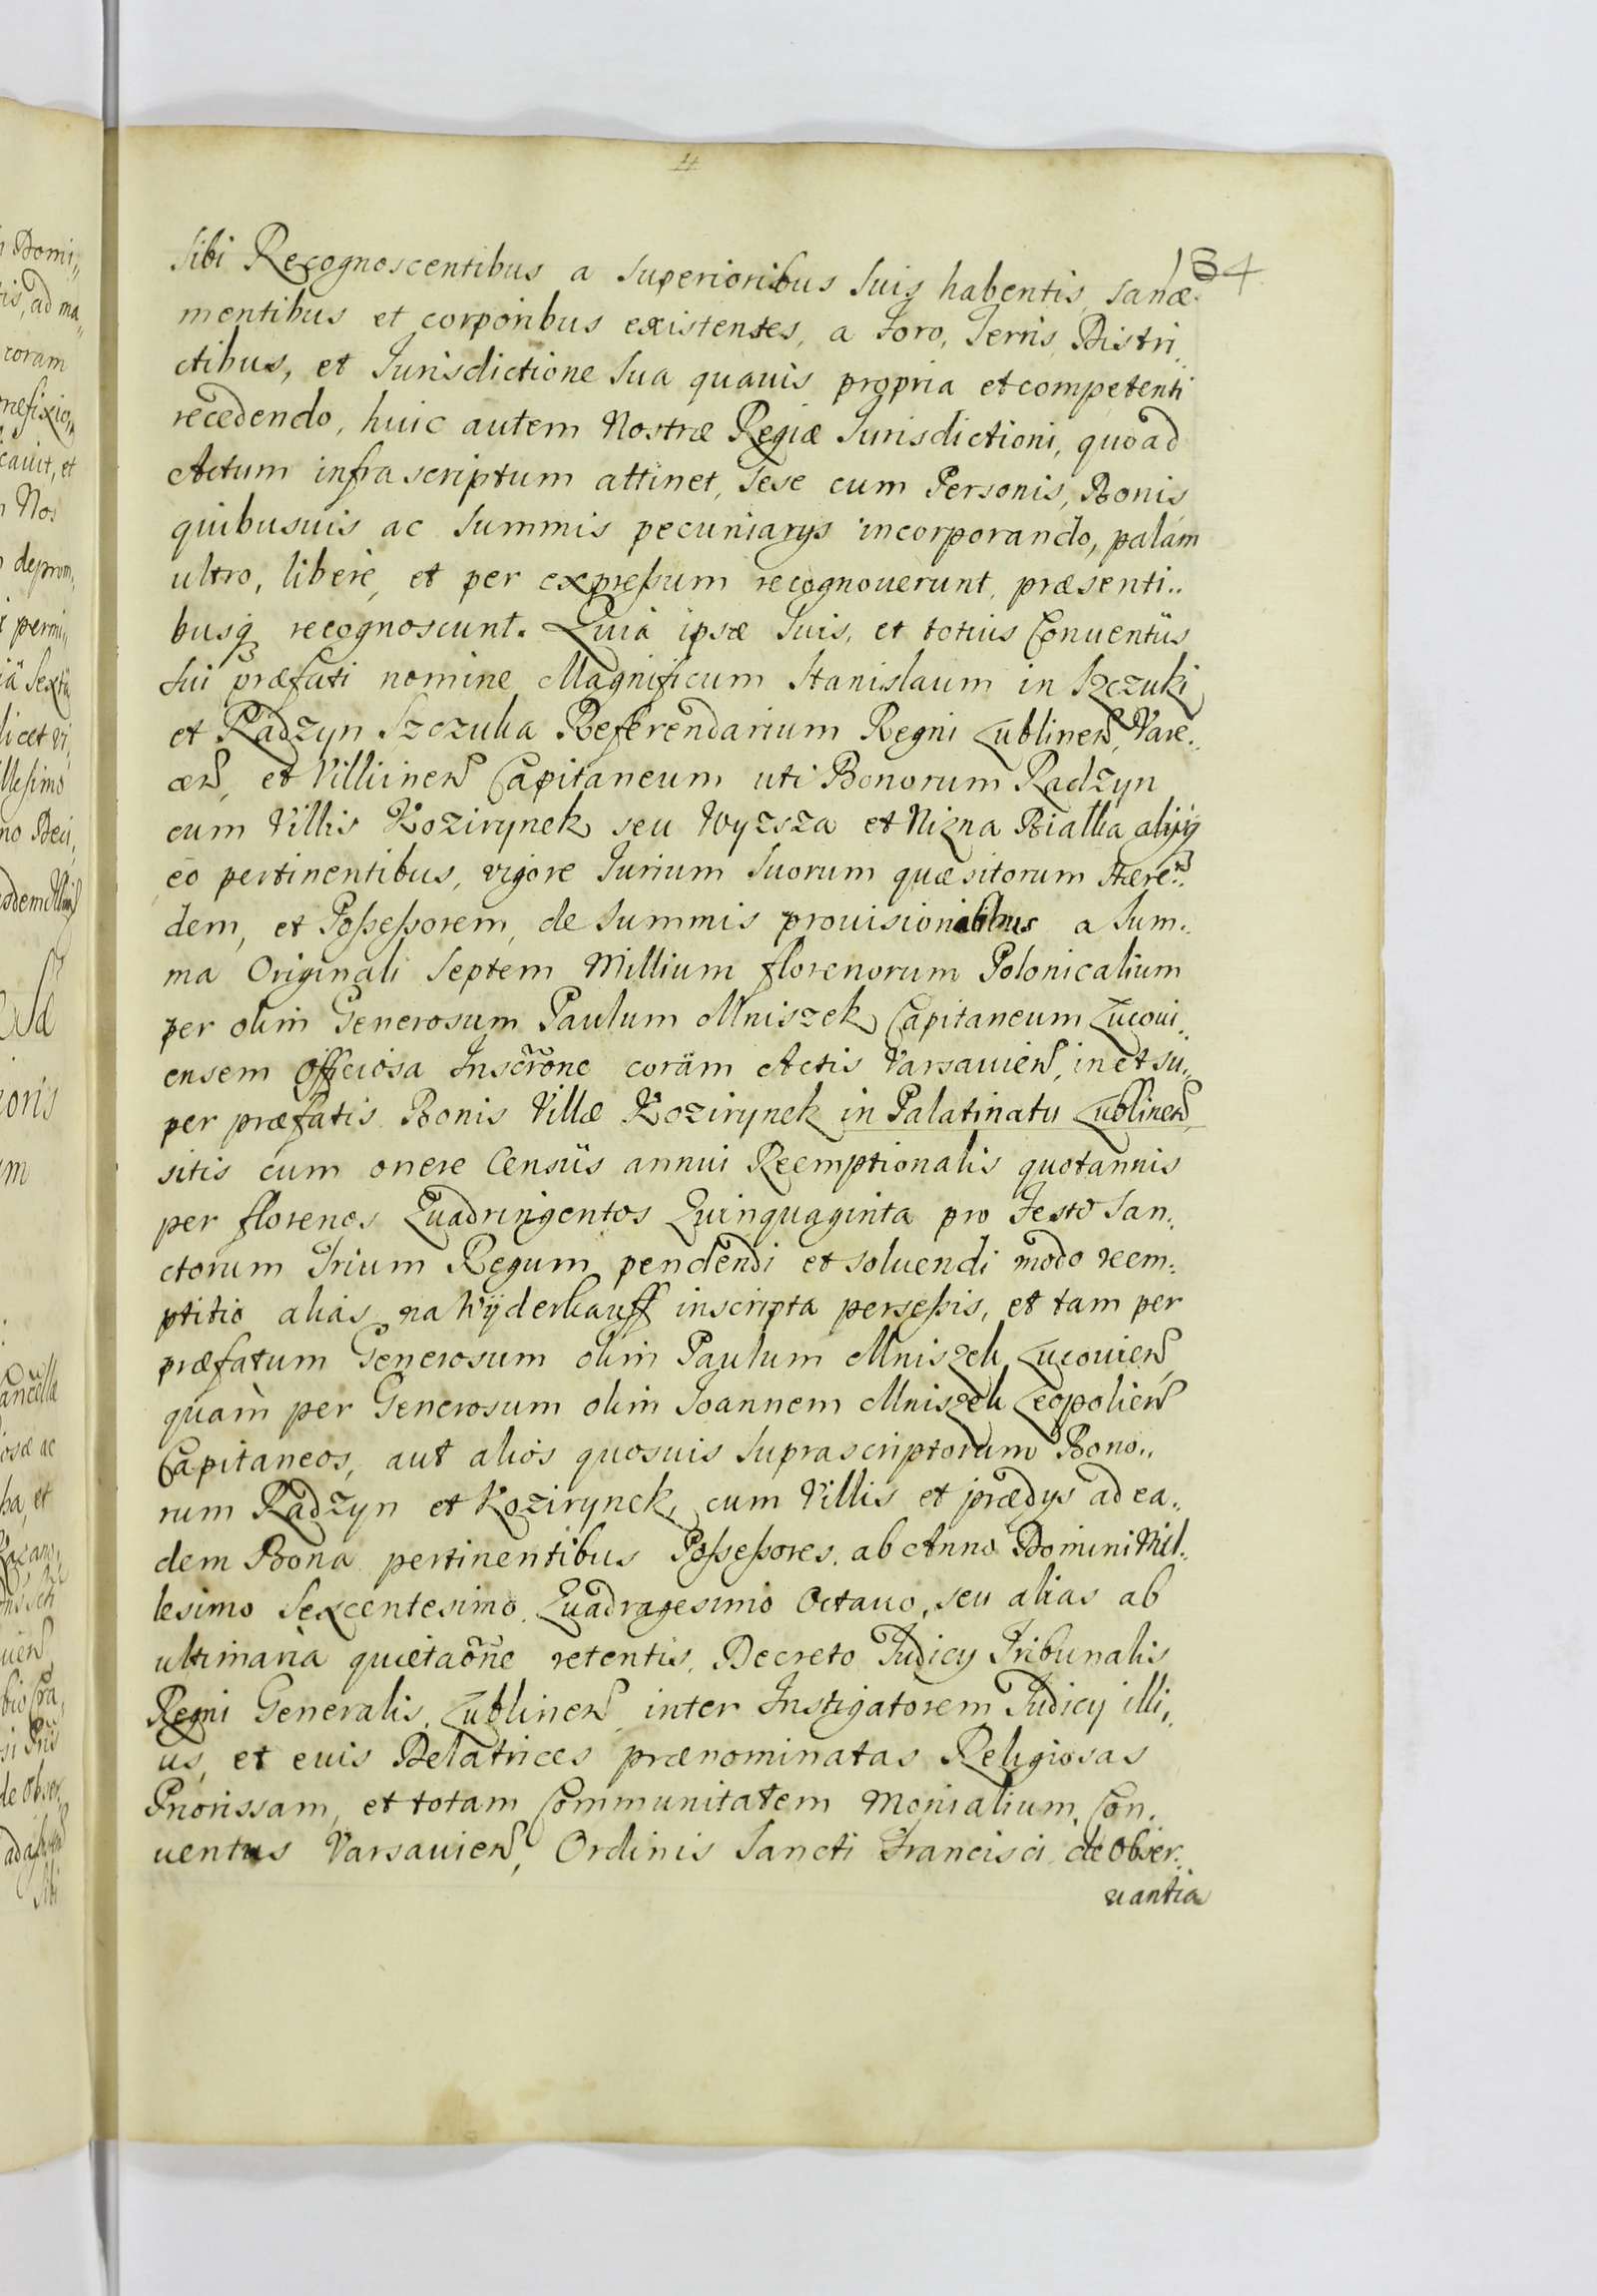 134
Sibi Recognoscentibus a Superioribus Suis habentis, Sanæ
mentibus et corporibus existentes, a Foro, Terris, Distri„
ctibus, et Jurisdictione Sua quauis propria et competenti
recedendo, huic autem Nostræ Regiæ Jurisdictioni, quoad
Actum infrascriptum attinet, Sese cum Personis, Bonis
quibusuis ac Summis pecuniarys incorporando, palam
ultro, libere, et per expressum recognouerunt, præsenti„
busq recognoscunt. Quia ipsæ Suis, et totius Conuentûs
Sui præfati nomine Magnificum Stanislaum in Szczuki
et Radzyn Szczuka Referendarium Regni Lublinen, Vare„
æn, et Villuinen Capitaneum uti Bonorum Radzyn
cum Villis Kozirynek seu Wyzsza et Nizna Bialka alijsq
eo pertinentibus, vigore Jurium Suorum quæsitorum Hære„
dem, et Possessorem, de Summis prouisionalibus a Sum„
ma Originali Septem Millium florenorum Polonicalium
per olim Generosum Paulum Mniszek Capitaneum Lucoui„
ensem officiosa Inscrõne coràm Actis Varsauien, in et su„
per præfatis Bonis Villæ Kozirynek in Palatinatu Lublinen,
sitis cum onere Censûs annui Reemptionalis quotannis
per florenos Quadringentos Quinquaginta pro Festo San„
ctorum Trium Regum pendendi et soluendi modo reem„
ptitio alias na Wyderkauff inscripta persessis, et tam per
præfatum Generosum olim Paulum Mniszek Lucouien,
quàm per Generosum olim Joannem Mniszek Leopolien
Capitaneos, aut alios quosuis Suprascriptorum Bono„
rum Radzyn et Kozirynek, cum Villis et prædys ad ea„
dem Bona pertinentibus Possessores, ab Anno Domini Mil„
lesimo Sexcentesimo Quadragesimo Octauo, seu alias ab
ultimaria quietaõne retentis, Decreto Judicy Tribunalis
Regni Generalis, Lublinen inter Instigatorem Judicy illi„
us, et euis Delatrices prænominatas Religiosas
Priorissam, et totam Communitatem Monialium Con„
uentus Varsauien, Ordinis Sancti Francisci de Obser„
uantia